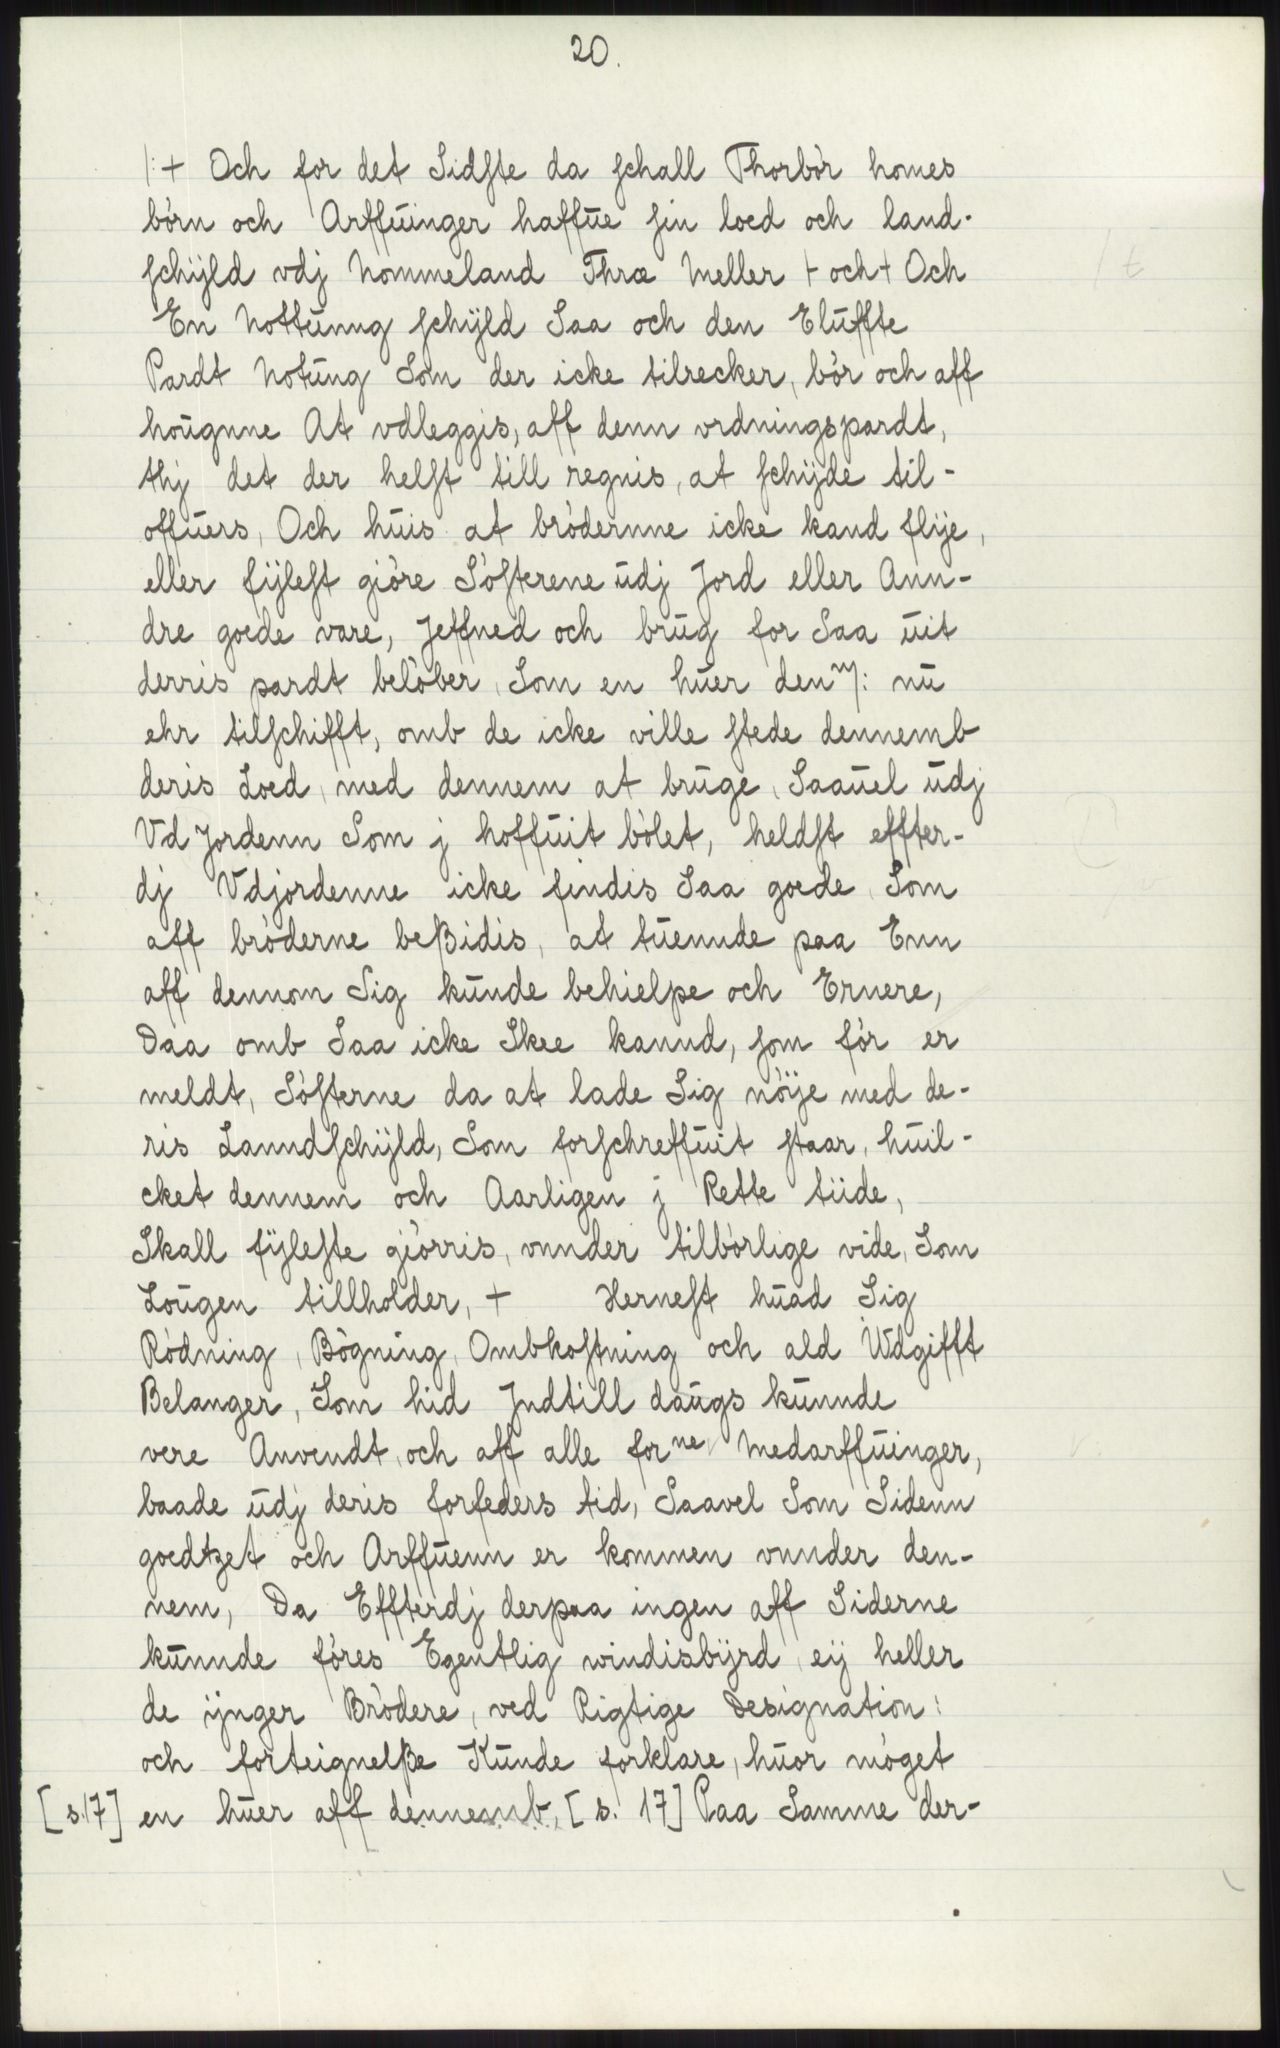 20.
/:+ Och for det Sidste da schall Thorbòr homes
bòrn och Arffūinger haffūe sin loed och land-
schÿld vdj Nommeland Thræ Meller + och + Och
En Nottūnng schÿld Saa och den Elūffte
Pardt Notūng Som der icke tilrecker, bòr och aff
hoūgnne At vdleggis, aff denn vrdningspardt,
thj det der helst till regnis, at schÿde til-
offuers, Och hūis at bròdernne icke kand flÿe,
eller fÿlest giòre Sòsterene ūdj Jord eller Ann-
dre goede vare, Jeffned och brūg for Saa ūit
derris pardt belòber, Som en hūer den̄m: nū
ehr tilschifft, omb de icke ville stede dennemb
deris Loed, med dennem at brūge, Saaūel ūdj
Vd Jordenn Som j hoffūit bòlet, heldst effter-
dj Vdjordenne icke findis Saa goede, Som
aff bròderne beßidis, at tūennde paa Enn
aff dennom Sig kūnde behielpe och Ernere,
Daa omb Saa icke Skee kannd, som fòr er
meldt, Sòsterne da at lade Sig nòÿe med de-
ris Lanndschÿld, Som forschreffūit staar, hūil-
cket dennem och Aarligen j Rette tiide,
Skall fÿleste giòrris, vnnder tilbòrlige vide, Som
Loūgen tillholder, + Hernest hūad Sig
Ròdning, Bògning, Ombkostning och ald Wdgifft
Belanger, Som hid Jndtill daūgs kūnnde
vere Anvendt, och aff alle forne Medarffūinger,
baade ūdj deris forfeders tid, Saavel Som Sidenn
goedtzet och Arffūenn er kommen vnnder den-
nem, Da Effterdj derpaa ingen aff Siderne
kūnnde fòres Egentlig windisbÿrd, eÿ heller
de ÿnger Bròdere, ved Rigtige Designation:
och forteignelße Kūnde forklare, hūor mòget
[s.17] en hūer aff dennemb, [s. 17] Paa Samme der-